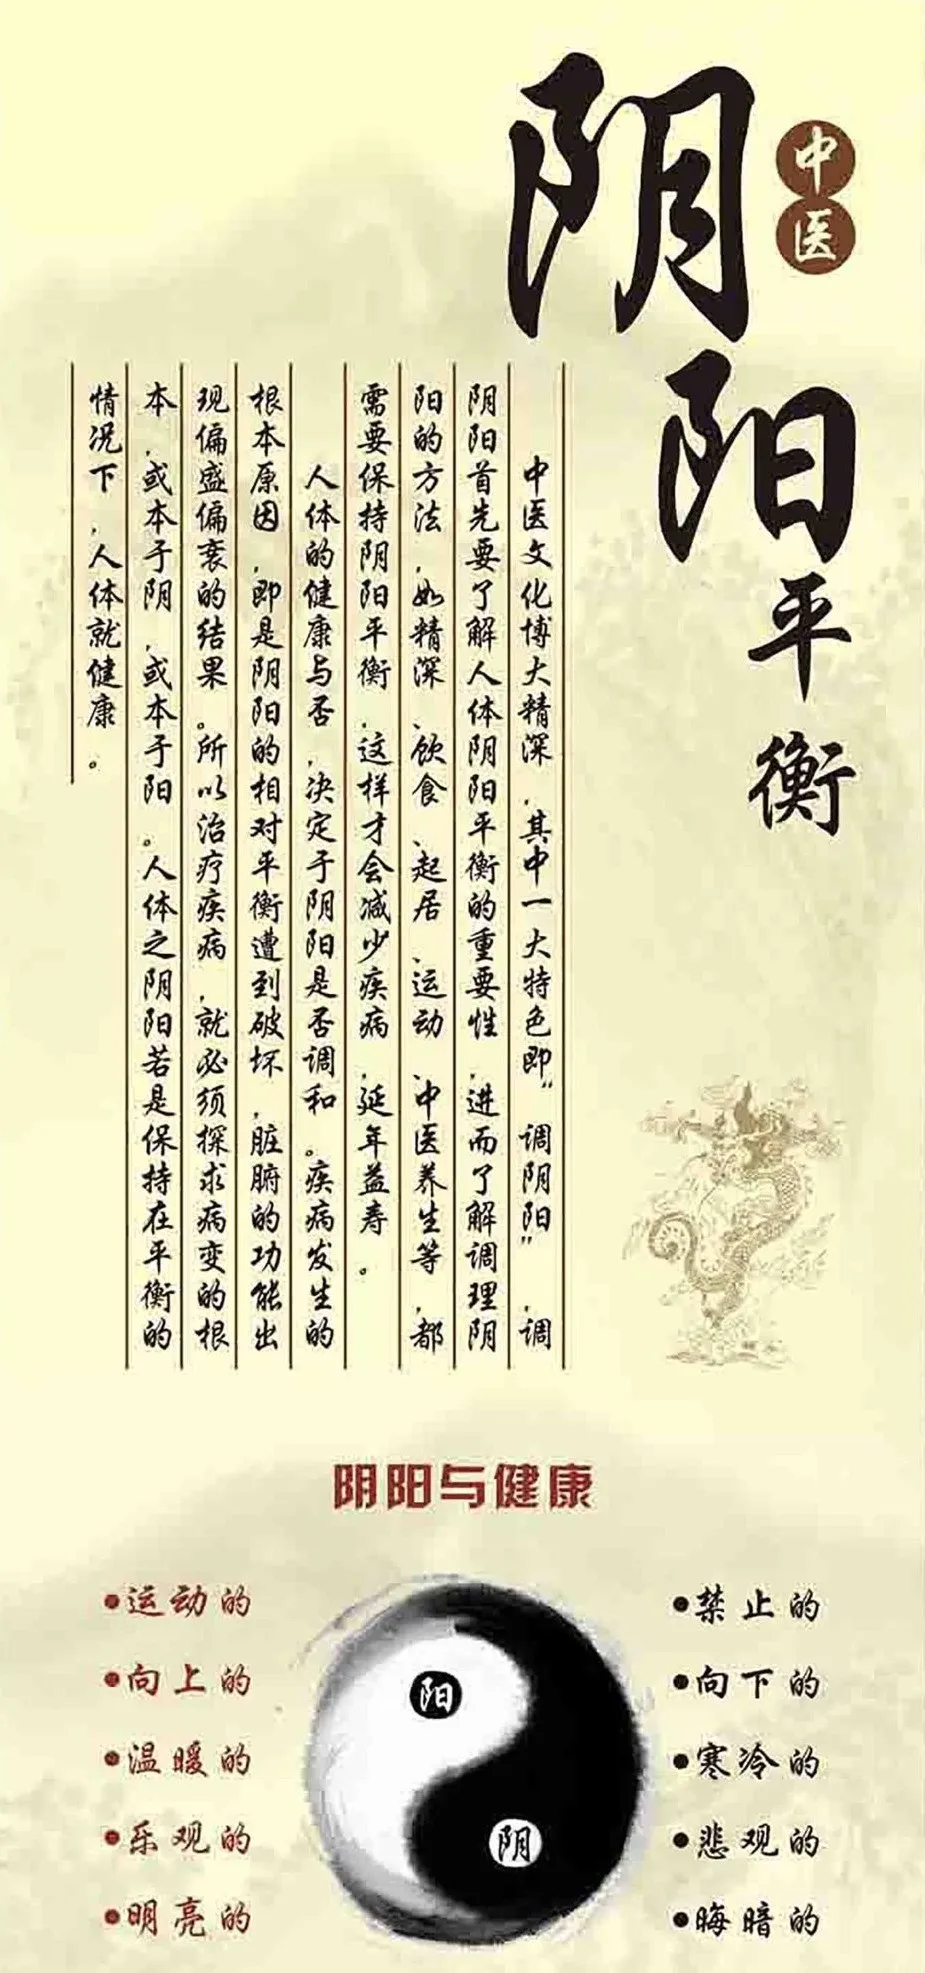 中医
阴阳平衡
中医文化博大精深,其中一大特色即“调阴阳”,调
阴阳首先要了解人体阴阳平衡的重要性,进而了解调理阴
阳的方法,如精深、饮食、起居、运动、中医养生等,都
需要保持阴阳平衡,这样才会减少疾病,延年益寿。
人体的健康与否,决定于阴阳是否调和。疾病发生的
根本原因,即是阴阳的相对平衡遭到破坏,脏腑的功能出
现偏盛偏衰的结果。所以治疗疾病,就必须探求病变的根
本,或本于阴,或本于阳。人体之阴阳若是保持在平衡的
情况下,人体就健康。
阴阳与健康
•运动的
•向上的
•温暖的
•乐观的
•明亮的
阳
阴
•禁止的
•向下的
•寒冷的
•悲观的
•晦暗的